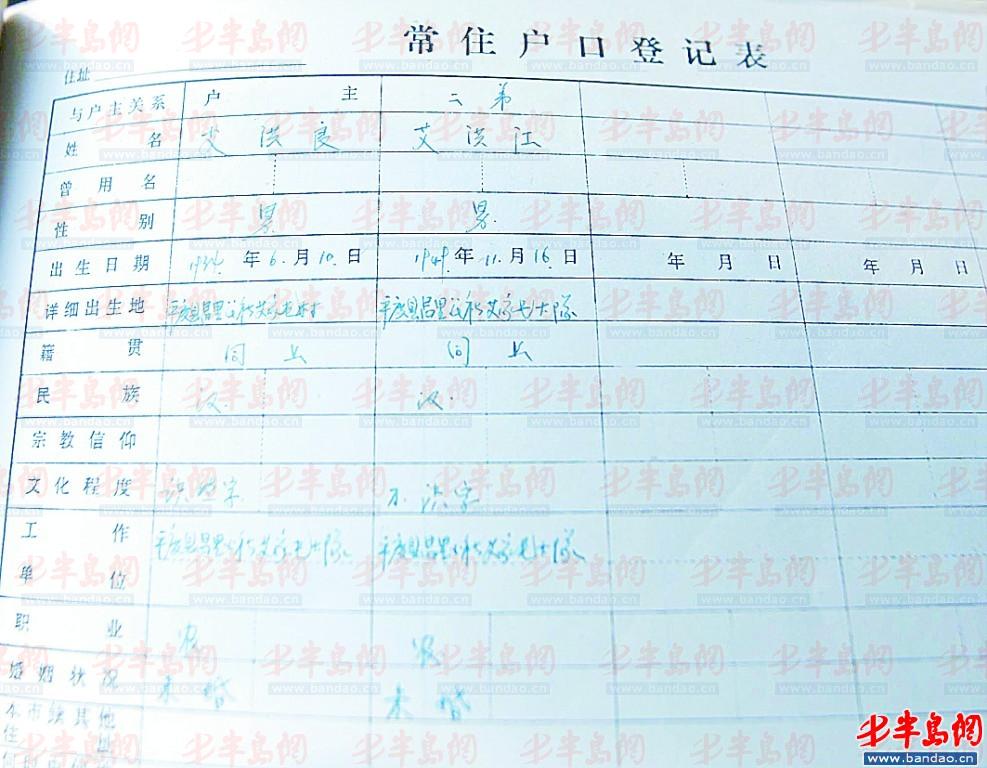 常住户口登记表
住址
与户主关系 户主 二弟
姓名 艾洪良 艾洪江
曾用名
性别 男 男
出生日期 年6月10日 1949年11月16日 年月日 年月日
详细出生地 平度县昌里公社艾家 平度县昌里公社艾家 大队
籍贯 同上 同上
民族 汉 汉
宗教信仰
文化程度 识字 不识字
工作单位 平度县昌里公社艾家 大队 平度县昌里公社艾家 大队
职业 农 农
婚姻状况 未婚 未婚
本市县其他住址
半岛网
www.bandao.cn